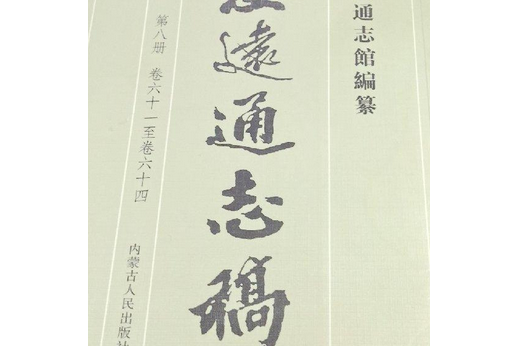 通志館編纂
遠通志稿
第八册 卷六十一至卷六十四
内蒙古人民出版